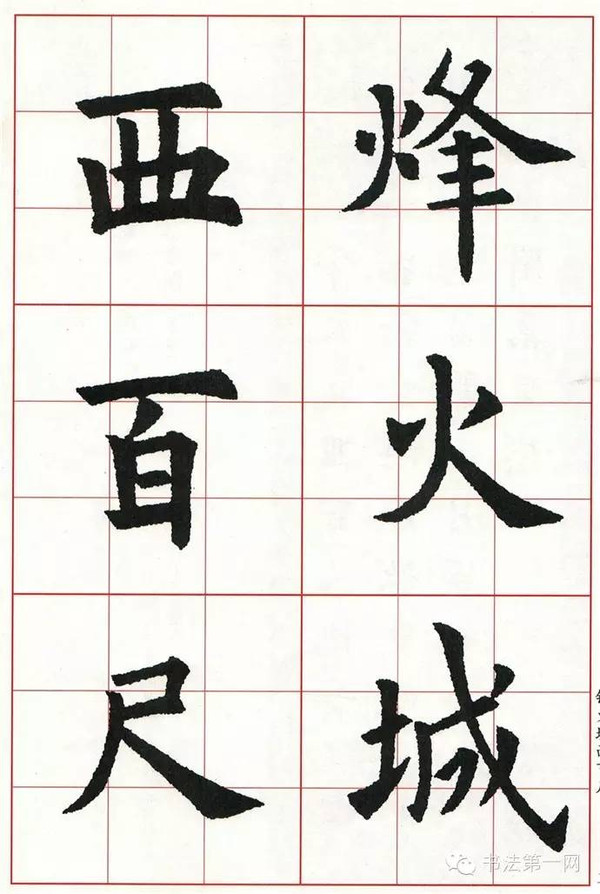 烽火城
西百尺
书法第一网